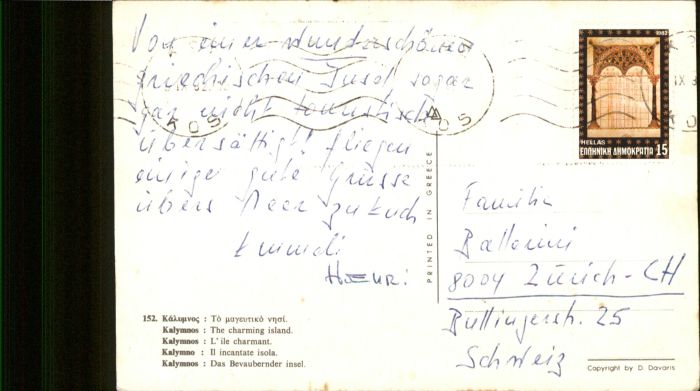 Von einer wunderschönen
griechischen Insel sogar
gar nicht touristisch
übersättigt fliegen
einige gute Grüsse
übers Meer zu Euch
HEURI
KOS
KOS
1982
HELLAS
ΕΛΛΗΝΙΚΗ ΔΗΜΟΚΡΑΤΙΑ 15
PRINTED IN GREECE
Familie
Ballarini
8004 Zürich-CH
Bullingerstr. 25
Schweiz
152. Κάλυμνος : Τὸ μαγευτικὸ νησί.
Kalymnos : The charming island.
Kalymnos : L' ile charmant.
Kalymno : Il incantate isola.
Kalymnos : Das Bevaubernder insel.
Copyright by D. Davaris